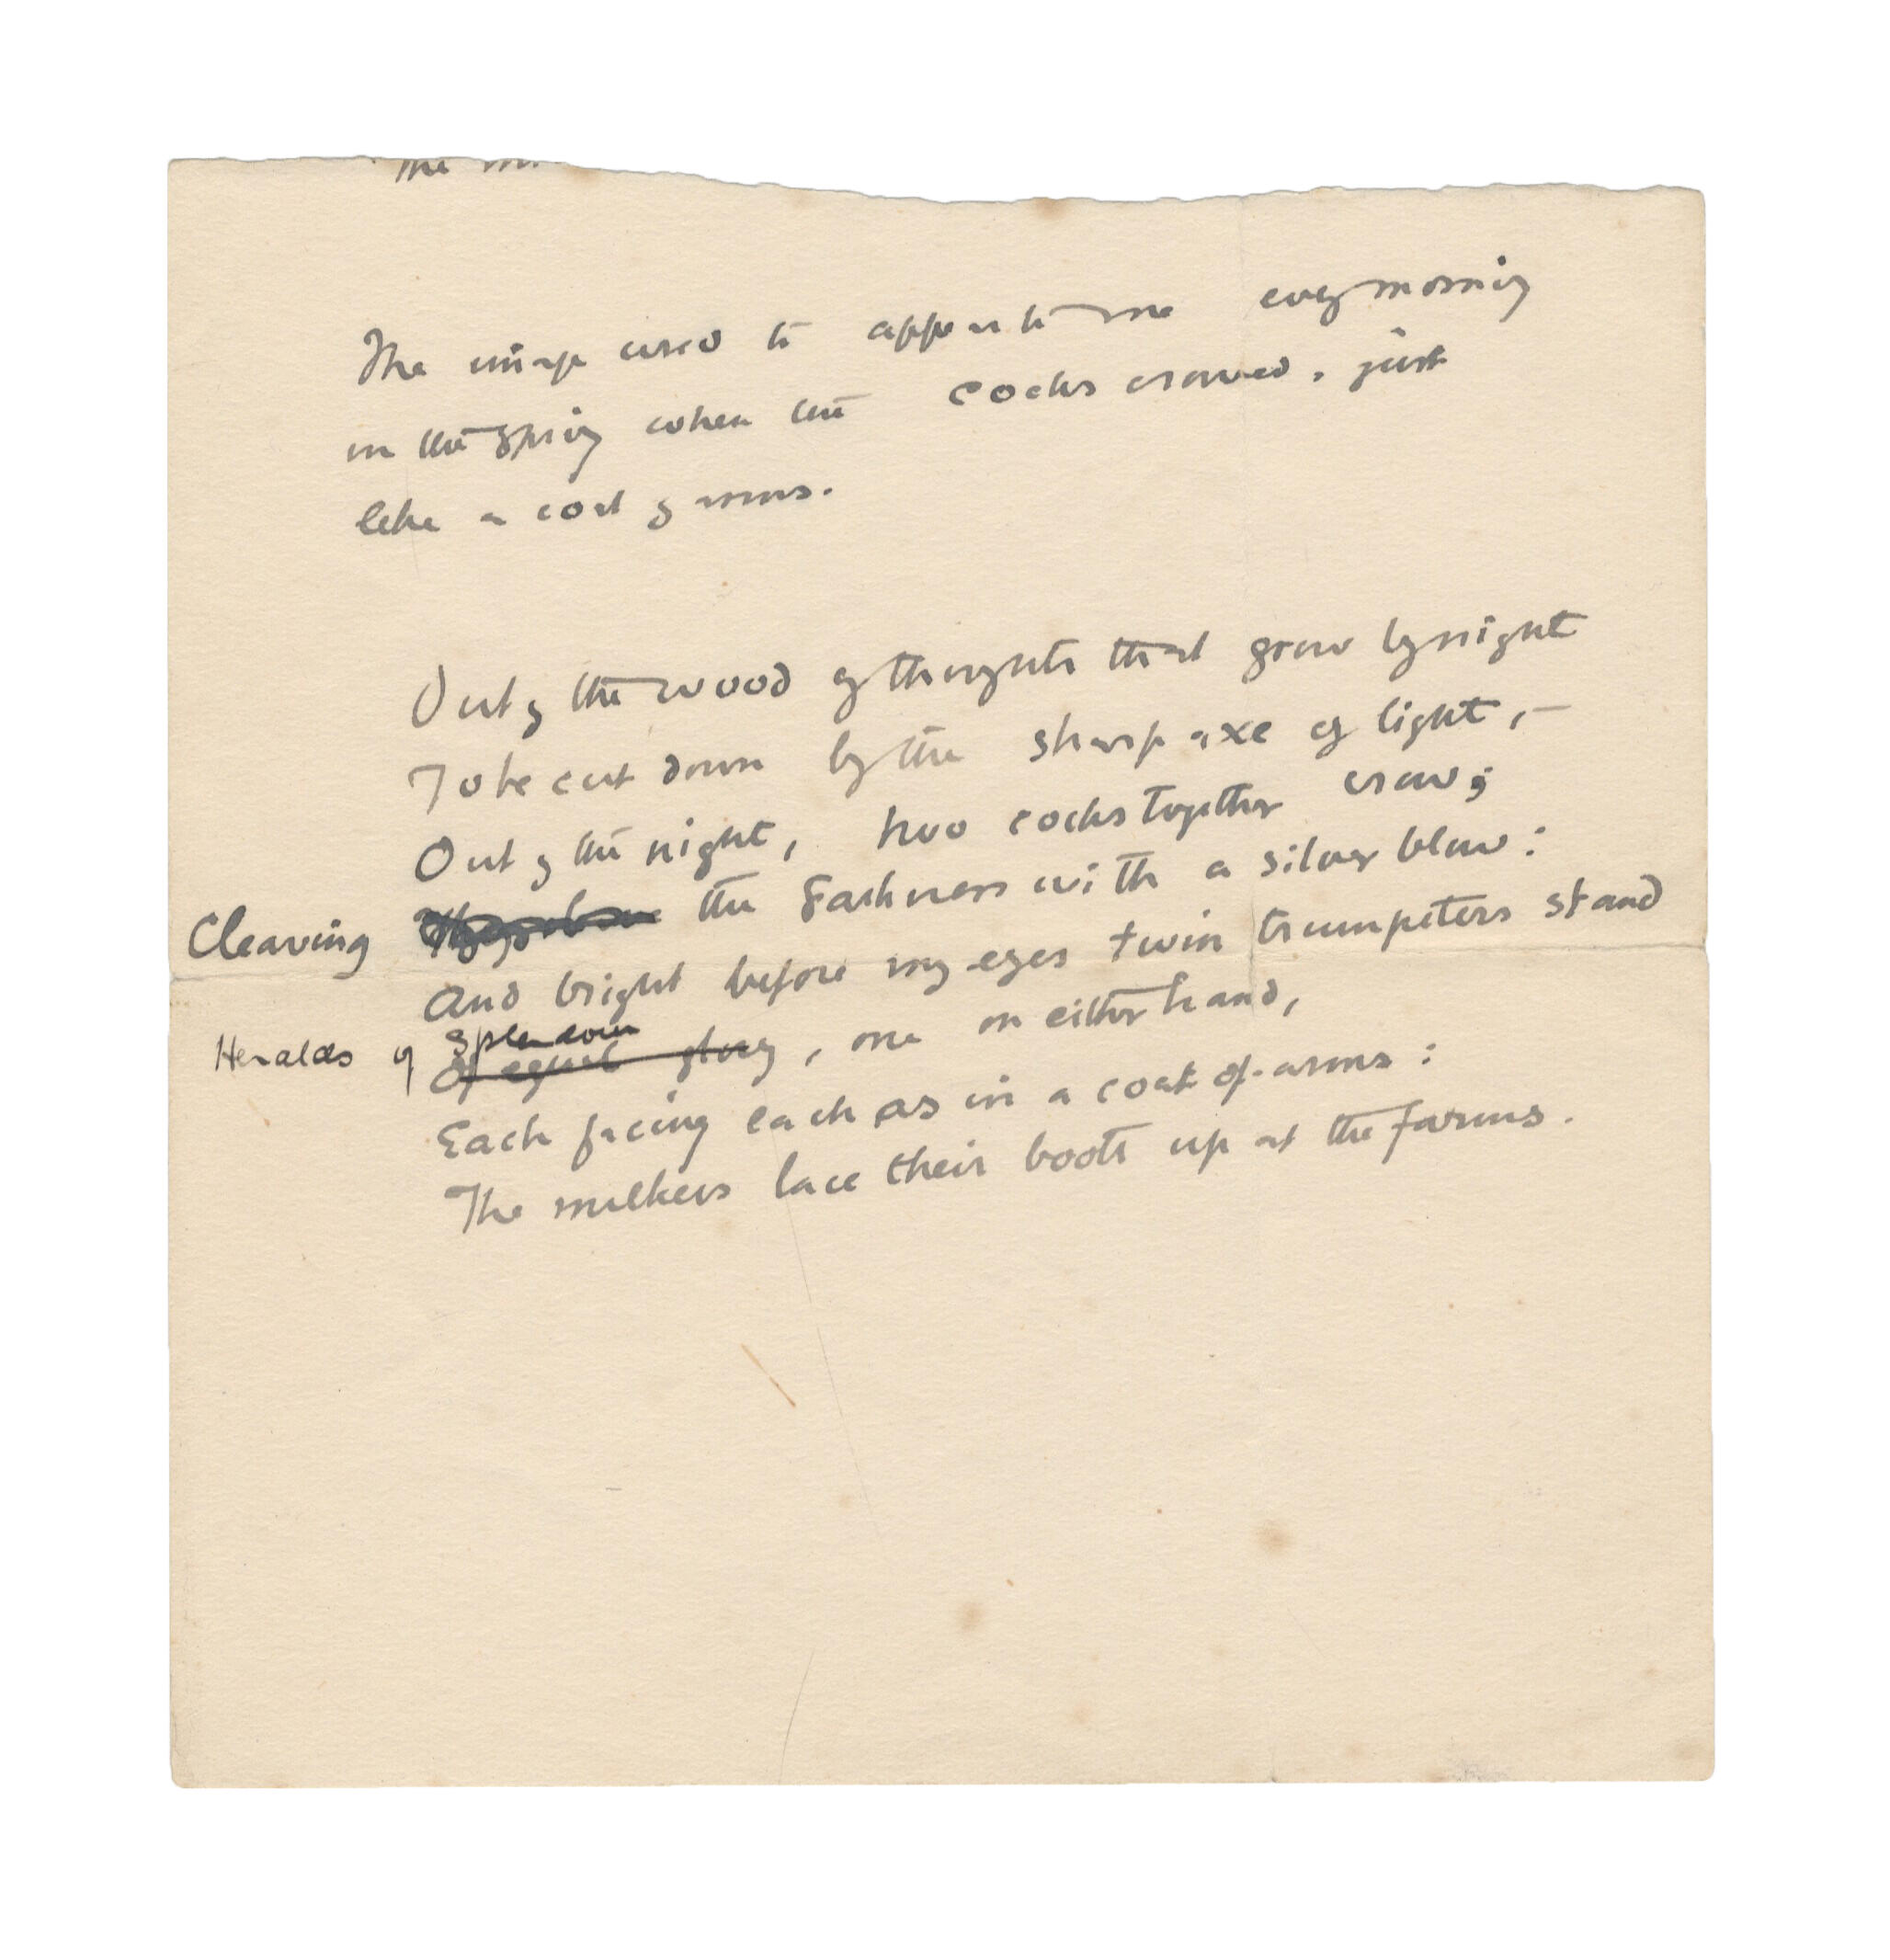 The
The image used to appear to me every morning
in the spring when the cocks crowed, just
like a coat of arms.
Out of the wood of thoughts that grow by night
To be cut down by the sharp axe of light,—
Out of the night, two cocks together crow;
Cleaving the darkness with a silver blow:
And bright before my eyes twin trumpeters stand
Heralds of splendour
Of equal glory, one on either hand,
Each facing each as in a coat-of-arms:
The milkers lace their boots up at the farms.